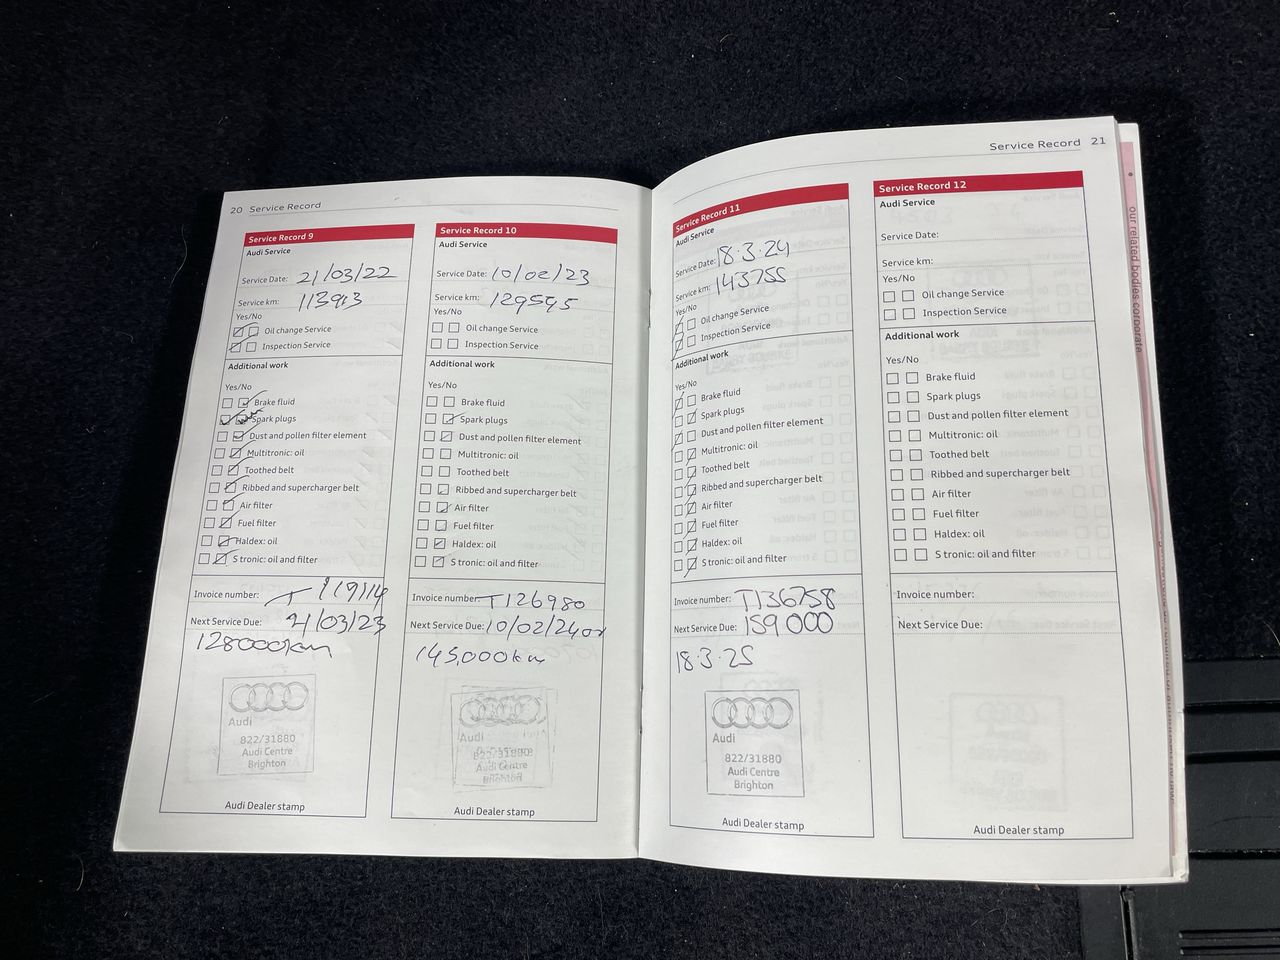 20 Service Record
Service Record 9
Audi Service
Service Date: 21/03/22
Service km: 113913
Yes/No
Oil change Service
Inspection Service
Additional work
Yes/No
Brake fluid
Spark plugs
Dust and pollen filter element
Multitronic: oil
Toothed belt
Ribbed and supercharger belt
Air filter
Fuel filter
Haldex: oil
S tronic: oil and filter
Invoice number:
Next Service Due: 21/03/23
128000km
Audi
822/31880
Audi Centre
Brighton
Audi Dealer stamp
Service Record 10
Audi Service
Service Date: 10/02/23
Service km: 129595
Yes/No
Oil change Service
Inspection Service
Additional work
Yes/No
Brake fluid
Spark plugs
Dust and pollen filter element
Multitronic: oil
Toothed belt
Ribbed and supercharger belt
Air filter
Fuel filter
Haldex: oil
S tronic: oil and filter
Invoice number: T126980
Next Service Due: 10/02/24 or
145,000km
Audi
Audi Centre
Brighton
Audi Dealer stamp
Service Record 21
Service Record 11
Audi Service
Service Date: 18.3.24
Service km: 143755
Yes/No
Oil change Service
Inspection Service
Additional work
Yes/No
Brake fluid
Spark plugs
Dust and pollen filter element
Multitronic: oil
Toothed belt
Ribbed and supercharger belt
Air filter
Fuel filter
Haldex: oil
S tronic: oil and filter
Invoice number: T136758
Next Service Due: 159000
18.3.25
Audi
822/31880
Audi Centre
Brighton
Audi Dealer stamp
Service Record 12
Audi Service
Service Date:
Service km:
Yes/No
Oil change Service
Inspection Service
Additional work
Yes/No
Brake fluid
Spark plugs
Dust and pollen filter element
Multitronic: oil
Toothed belt
Ribbed and supercharger belt
Air filter
Fuel filter
Haldex: oil
S tronic: oil and filter
Invoice number:
Next Service Due:
Audi Dealer stamp
our related bodies corporate